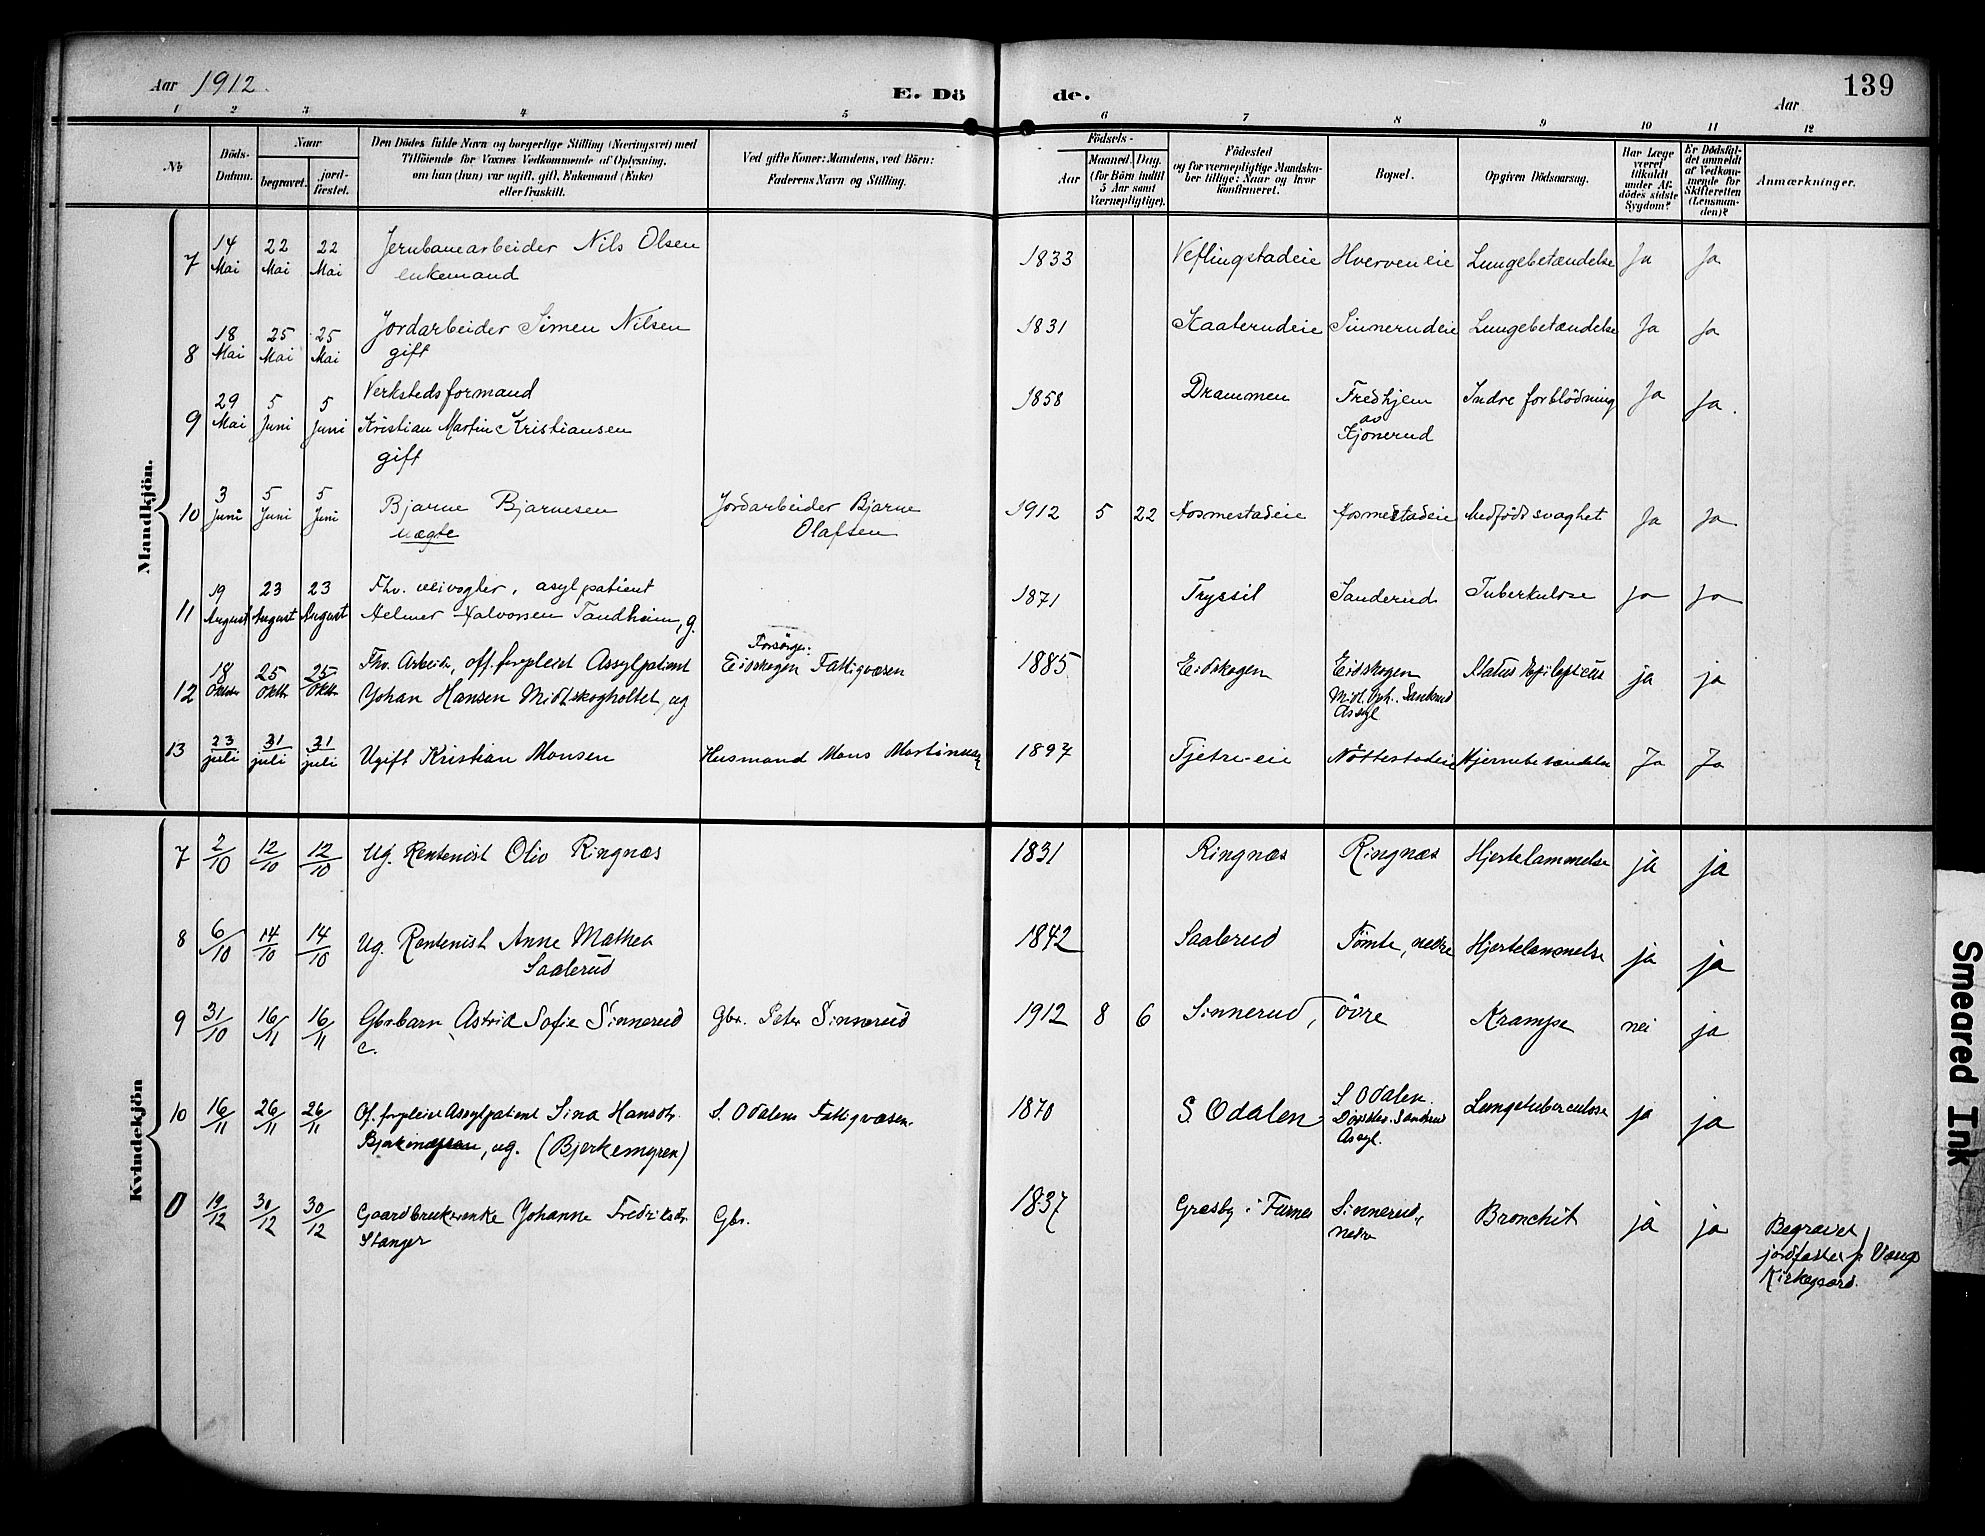 Aar 1912. E. Dö de. Aar 139
1 2 3 4 5 6 7 8 9 10 11 12
No Döds-Datum. Naar begravet. jord-fæstet. Den Dödes fulde Navn og borgerlige Stilling (Næringsvei) med Tilföiende for Voxnes Vedkommende af Oplysning, om han (hun) var ugift, gift, Enkemand (Enke) eller fraskilt. Ved gifte Koner: Mandens, ved Börn: Faderens Navn og Stilling. Födsels- Aar Maaned. Dag. (for Börn indtil 5 Aar samt Værnepligtige). Födested og for værnepligtige Mandskaber tillige: Naar og hvor konfirmeret. Bopæl. Opgiven Dödsaarsag. Har Læge været tilkaldt under Afdödes sidste Sygdom? Er Dödsfaldet anmeldt af Vedkommende for Skifteretten (Lensmanden)? Anmærkninger.
Mandkjön.
7 14 Mai 22 Mai 22 Mai Jernbanearbeider Nils Olsen 1833 Veflingstadeie Hverveneie Lungebetændelse Ja Ja
enkemand
8 18 Mai 25 Mai 25 Mai Jordarbeider Simen Nilsen 1831 Kaaterudeie Sinnerudeie Lungebetændelse Ja Ja
gift
9 29 Mai 5 Juni 5 Juni Verkstedsformand 1858 Drammen Fredhjem av Kjonerud Indre forblödning Ja Ja.
Kristian Martin Kristiansen
gift
10 3 Juni 5 Juni 5 Juni Bjarne Bjarnesen Jordarbeider Bjarne Olafsen 1912 5 22 Aosmestadeie Aosmestadeie Medfödt svaghet Ja Ja
uægte
11 19 August 23 August 23 August Fhv. veivogter, asylpatient 1871 Trysil Sanderud Tuberkulose Ja Ja
Helmer Halvorsen Sandheim, g.
12 18 Oktober 25 Oktb. 25 Oktb. Fhv. Arbeid., off. forpleiet Assylpatient Forsörger: Eidskogen Fattigvæsen 1885 Eidskogen Eidskogen Midl. Oph. Sanderud Assyl Status epilepticus ja ja
Johan Hansen Midtskogholtet, ug
13 23 juli 31 juli 31 juli Ugift Kristian Monsen Husmand Mons Martinusen 1897 Tjetre-eie Nöttestadeie Hjernebetændelse Ja Ja
Kvindekjön
7 2/10 12/10 12/10 Ug. Rentenist Oliv Ringnæs 1831 Ringnæs Ringnæs Hjertelammelse ja ja
8 6/10 14/10 14/10 Ug. Rentenist Anne Mathea 1842 Saalerud Tømte, nedre Hjertelammelse ja ja
Saalerud
9 31/10 16/11 16/11 Gbr.barn Astrid Sofie Sinnerud Gbr. Peter Sinnerud 1912 8 6 Sinnerud, övre Krampe nei ja
c.
10 16/11 26/11 26/11 Of. forpleiet Assylpatient Sina Hansdtr. S. Odalens Fattigvæsen. 1870 S. Odalen S. Odalen. Sanderud Assyl. Lungetuberculose ja ja
ug. (Bjerkemyren)
0 19/12 30/12 30/12 Gaardbrukerenke Johanne Fredriksdtr. Gbr. 1837 Græsby i Furnes Sinnerud, nedre Bronchit ja ja Begravet
Stanger jordfæstet p. Vangs
Kirkegaard.
Smeared Ink